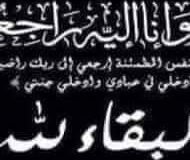 وإنا إليه راجعو
لنفس المطمئنة ارجعي إلى ربك راضية
دخلي في عبادي وادخلي جنتي
لبقاء لله